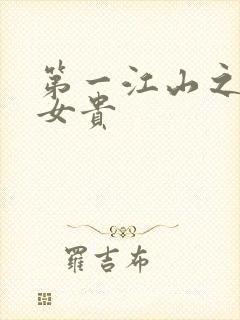 第一江山之
女貴
羅吉布